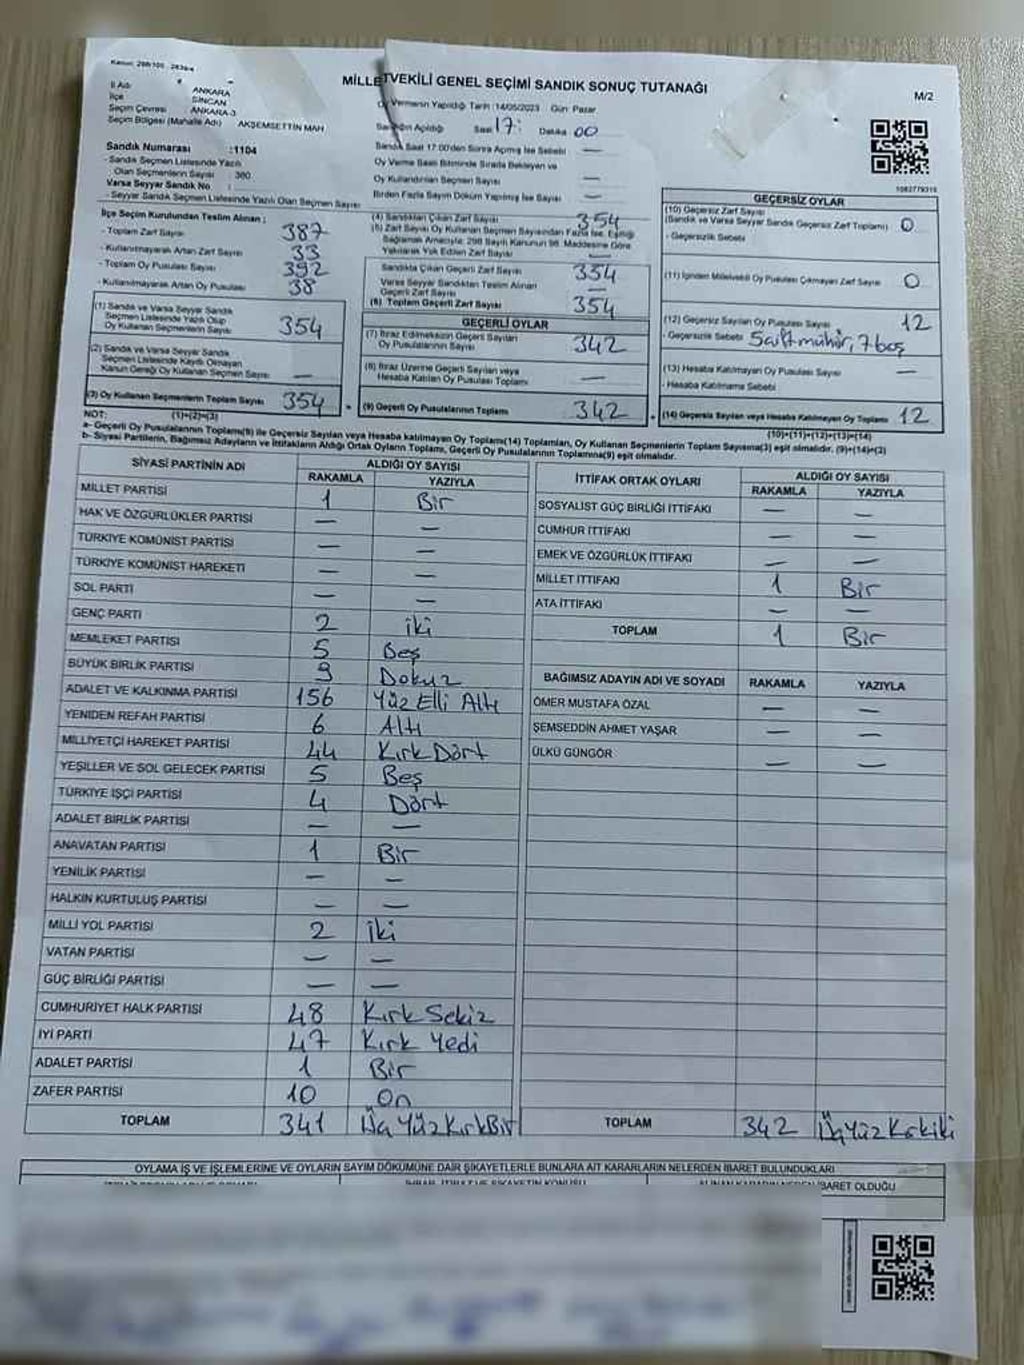 MİLLETVEKİLİ GENEL SEÇİMİ SANDIK SONUÇ TUTANAĞI
M/2
İl Adı : ANKARA
İlçe : SİNCAN
Seçim Çevresi : ANKARA-3
Seçim Bölgesi (Mahalle Adı) AKŞEMSETTİN MAH
Oy Vermenin Yapıldığı Tarih :14/05/2023 Gün: Pazar
Sandığın Açıldığı Saat 17: Dakika 00
Sandık Saat 17.00'den Sonra Açılmış İse Sebebi —
Oy Verme Saati Bitiminde Sırada Bekleyen ve
Oy Kullandırılan Seçmen Sayısı —
Birden Fazla Sayım Döküm Yapılmış İse Sayısı —
Sandık Numarası :1104
- Sandık Seçmen Listesinde Yazılı
Olan Seçmenlerin Sayısı : 380
Varsa Seyyar Sandık No :
- Seyyar Sandık Seçmen Listesinde Yazılı Olan Seçmen Sayısı
1082779315
İlçe Seçim Kurulundan Teslim Alınan :
- Toplam Zarf Sayısı 387
- Kullanılmayarak Artan Zarf Sayısı 33
- Toplam Oy Pusulası Sayısı 392
- Kullanılmayarak Artan Oy Pusulası 38
(1) Sandık ve Varsa Seyyar Sandık
Seçmen Listesinde Yazılı Olup
Oy Kullanan Seçmenlerin Sayısı 354
(2) Sandık ve Varsa Seyyar Sandık
Seçmen Listesinde Kayıtlı Olmayan
Kanun Gereği Oy Kullanan Seçmen Sayısı —
(3) Oy Kullanan Seçmenlerin Toplam Sayısı 354
(1)+(2)=(3)
(4) Sandıktan Çıkan Zarf Sayısı 354
(5) Zarf Sayısı Oy Kullanan Seçmen Sayısından Fazla İse, Eşitliği
Bağlamak Amacıyla, 298 Sayılı Kanunun 98. Maddesine Göre
Yakılarak Yok Edilen Zarf Sayısı —
Sandıkta Çıkan Geçerli Zarf Sayısı 354
Varsa Seyyar Sandıktan Teslim Alınan
Geçerli Zarf Sayısı —
(6) Toplam Geçerli Zarf Sayısı 354
GEÇERLİ OYLAR
(7) İtiraz Edilmeksizin Geçerli Sayılan
Oy Pusulalarının Sayısı 342
(8) İtiraz Üzerine Geçerli Sayılan veya
Hesaba Katılan Oy Pusulası Toplamı —
(9) Geçerli Oy Pusulalarının Toplamı 342
GEÇERSİZ OYLAR
(10) Geçersiz Zarf Sayısı
(Sandık ve Varsa Seyyar Sandık Geçersiz Zarf Toplamı) 0
- Geçersizlik Sebebi
(11) İçinden Milletvekili Oy Pusulası Çıkmayan Zarf Sayısı 0
(12) Geçersiz Sayılan Oy Pusulası Sayısı 12
- Geçersizlik Sebebi 5 çift mühür, 7 boş
(13) Hesaba Katılmayan Oy Pusulası Sayısı —
- Hesaba Katılmama Sebebi
(14) Geçersiz Sayılan veya Hesaba Katılmayan Oy Toplamı 12
(10)+(11)+(12)+(13)=(14)
NOT:
a- Geçerli Oy Pusulalarının Toplamı(9) ile Geçersiz Sayılan veya Hesaba katılmayan Oy Toplamı(14) Toplamları, Oy Kullanan Seçmenlerin Toplam Sayısına(3) eşit olmalıdır. (9)+(14)=(3)
b- Siyasi Partilerin, Bağımsız Adayların ve İttifakların Aldığı Oyların Toplamı, Geçerli Oy Pusulalarının Toplamına(9) eşit olmalıdır.
SİYASİ PARTİNİN ADI ALDIĞI OY SAYISI
RAKAMLA YAZIYLA
MİLLET PARTİSİ 1 Bir
HAK VE ÖZGÜRLÜKLER PARTİSİ — —
TÜRKİYE KOMÜNİST PARTİSİ — —
TÜRKİYE KOMÜNİST HAREKETİ — —
SOL PARTİ — —
GENÇ PARTİ 2 iki
MEMLEKET PARTİSİ 5 Beş
BÜYÜK BİRLİK PARTİSİ 9 Dokuz
ADALET VE KALKINMA PARTİSİ 156 Yüz Elli Altı
YENİDEN REFAH PARTİSİ 6 Altı
MİLLİYETÇİ HAREKET PARTİSİ 44 Kırk Dört
YEŞİLLER VE SOL GELECEK PARTİSİ 5 Beş
TÜRKİYE İŞÇİ PARTİSİ 4 Dört
ADALET BİRLİK PARTİSİ — —
ANAVATAN PARTİSİ 1 Bir
YENİLİK PARTİSİ — —
HALKIN KURTULUŞ PARTİSİ — —
MİLLİ YOL PARTİSİ 2 İki
VATAN PARTİSİ — —
GÜÇ BİRLİĞİ PARTİSİ — —
CUMHURİYET HALK PARTİSİ 48 Kırk Sekiz
İYİ PARTİ 47 Kırk Yedi
ADALET PARTİSİ 1 Bir
ZAFER PARTİSİ 10 On
TOPLAM 341 Üç Yüz Kırk Bir
İTTİFAK ORTAK OYLARI ALDIĞI OY SAYISI
RAKAMLA YAZIYLA
SOSYALİST GÜÇ BİRLİĞİ İTTİFAKI — —
CUMHUR İTTİFAKI — —
EMEK VE ÖZGÜRLÜK İTTİFAKI — —
MİLLET İTTİFAKI 1 Bir
ATA İTTİFAKI — —
TOPLAM 1 Bir
BAĞIMSIZ ADAYIN ADI VE SOYADI RAKAMLA YAZIYLA
ÖMER MUSTAFA ÖZAL — —
ŞEMSEDDİN AHMET YAŞAR — —
ÜLKÜ GÜNGÖR — —
TOPLAM 342 Üç Yüz Kırk iki
OYLAMA İŞ VE İŞLEMLERİNE VE OYLARIN SAYIM DÖKÜMÜNE DAİR ŞİKAYETLERLE BUNLARA AİT KARARLARIN NELERDEN İBARET BULUNDUKLARI
İHBAR, İTİRAZ VE ŞİKAYETİN KONUSU
ALINAN KARARIN NEDEN İBARET OLDUĞU